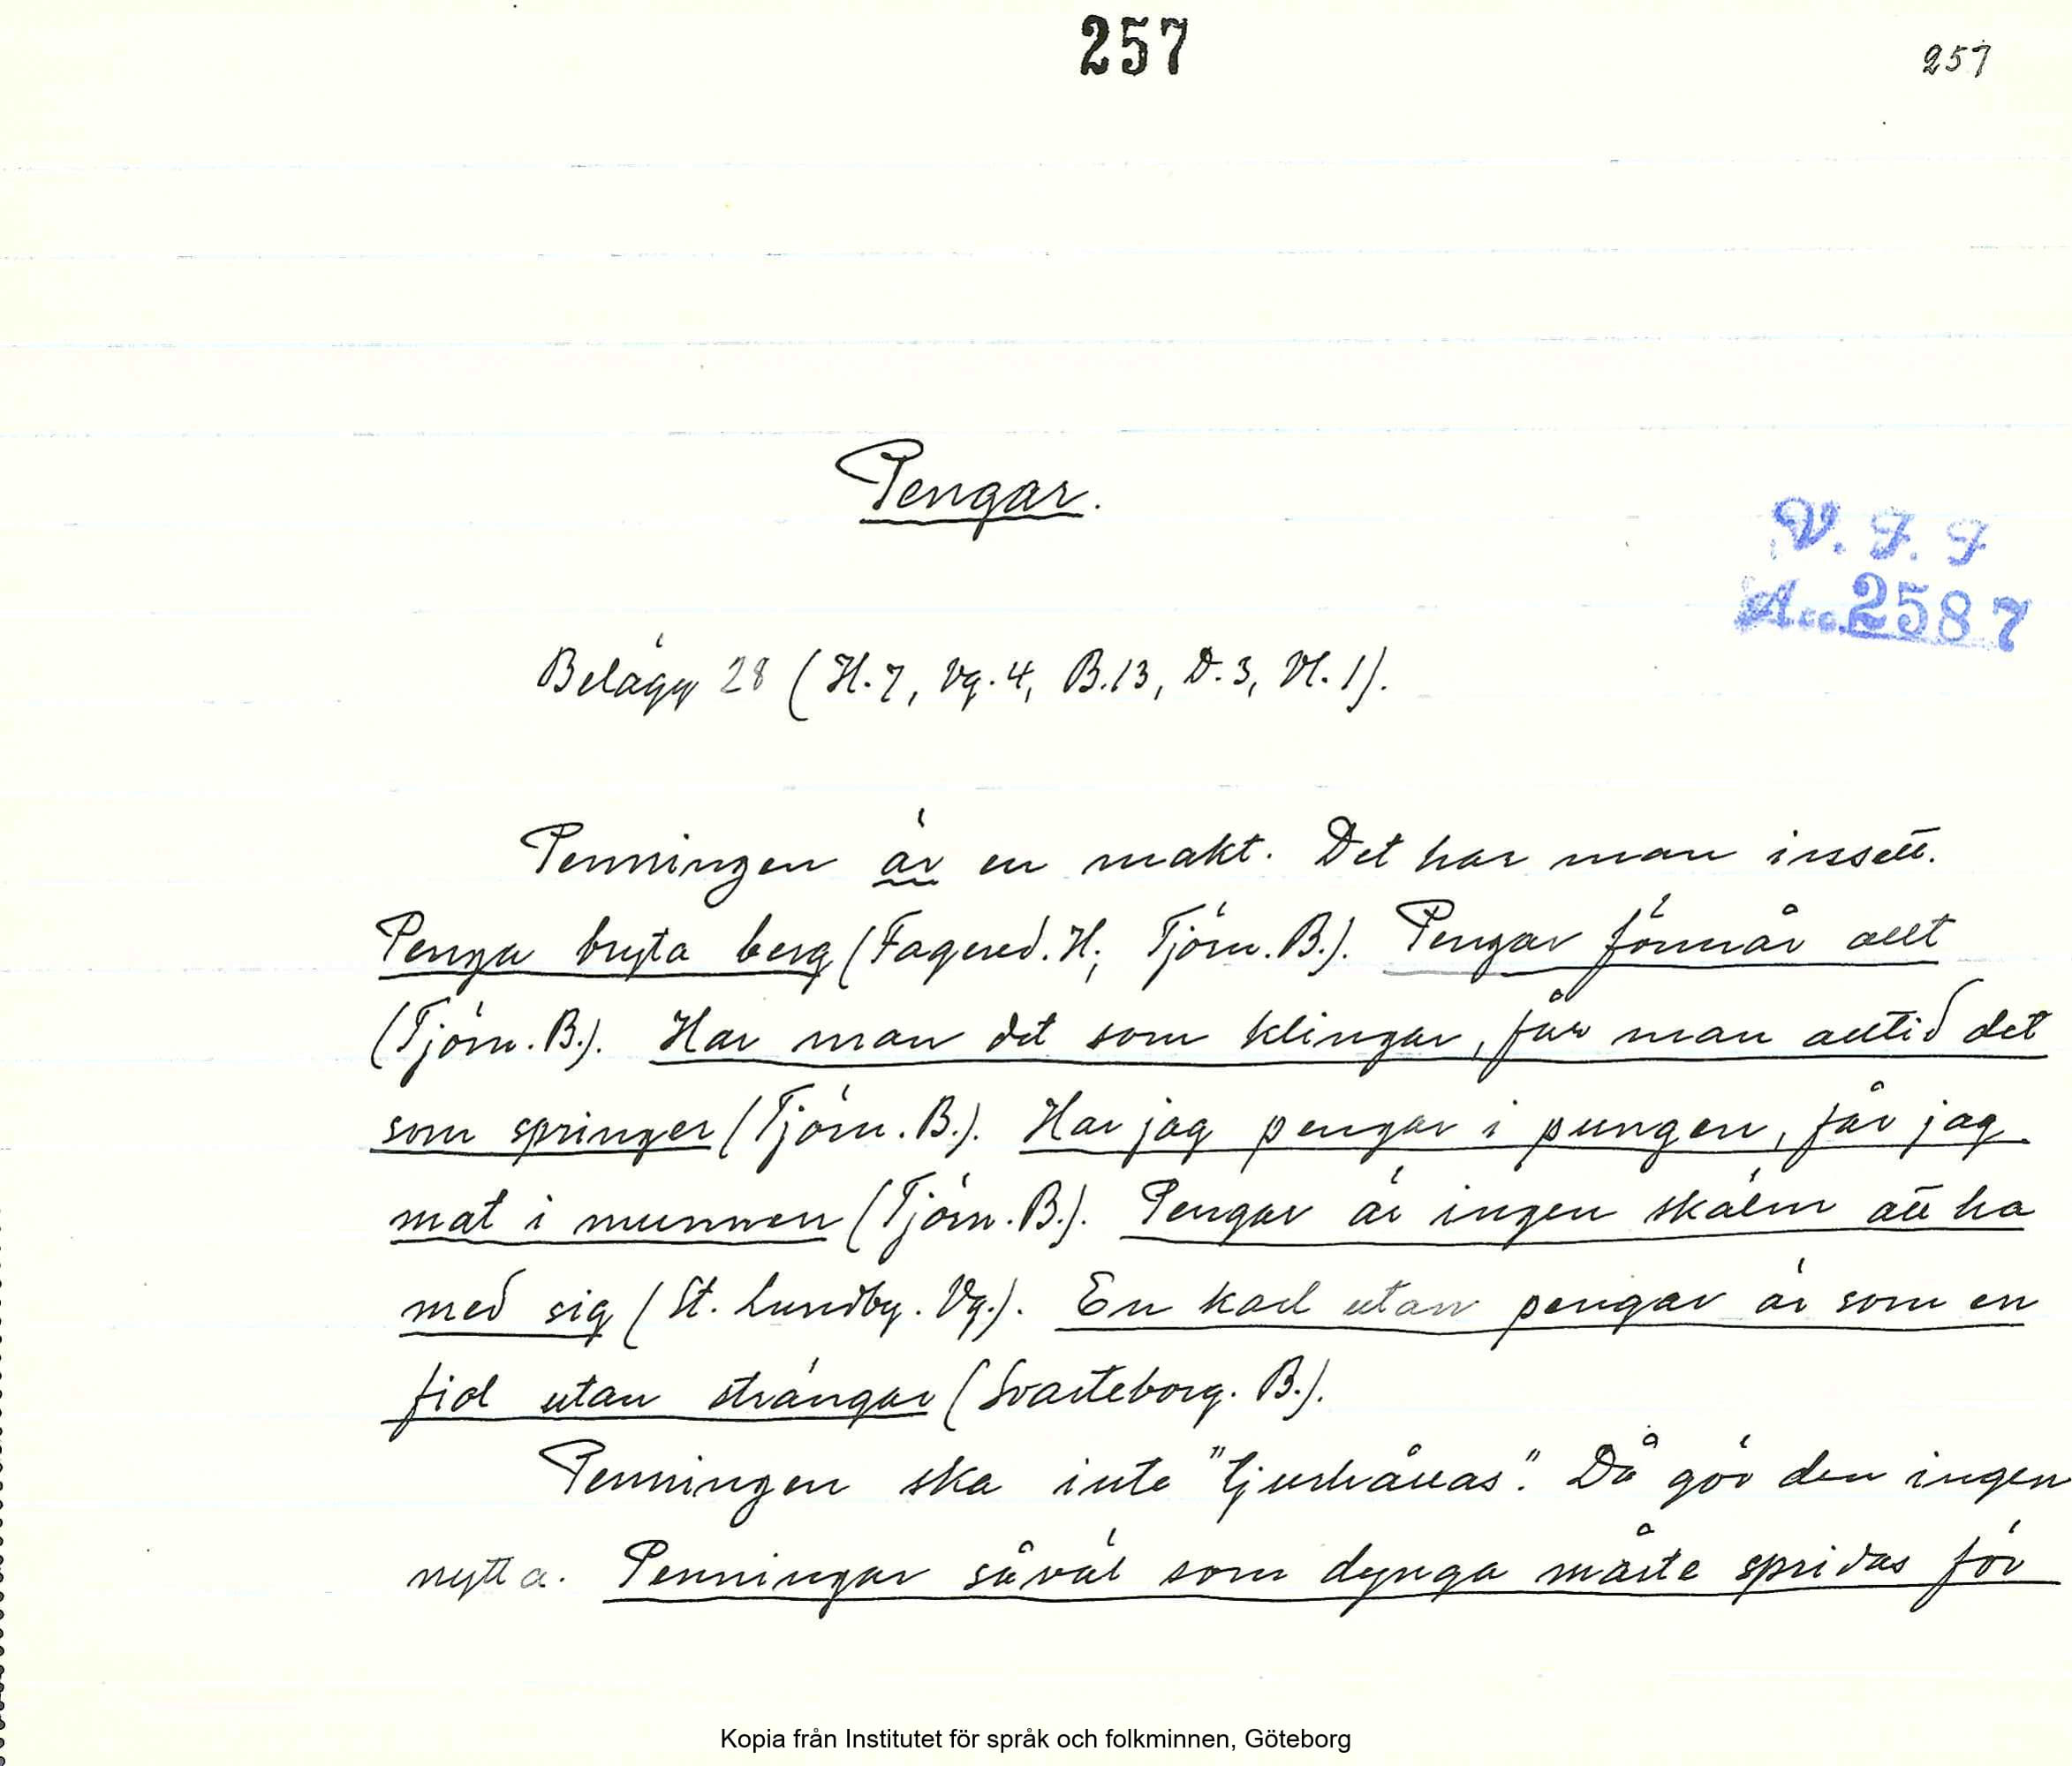 257
257
Pengar.
V. F. F
Acc. 2587
Belägg 28 (H. 7, Vg. 4, B. 13, D. 3, Vl. 1).
Penningen är en makt. Det har man insett.
Penga bryta berg (Fagered. H; Tjörn. B.). Pengar förmår allt
(Tjörn. B.). Har man det som klingar, får man alltid det
som springer (Tjörn. B.). Har jag pengar i pungen, får jag
mat i munnen (Tjörn. B.). Pengar är ingen skälm att ha
med sig (St. Lundby. Vg.). En karl utan pengar är som en
fiol utan strängar (Svarteborg. B.).
Penningen ska inte "tjurhållas". Då gör den ingen
nytta. Penningar såväl som dynga måste spridas för
Kopia från Institutet för språk och folkminnen, Göteborg